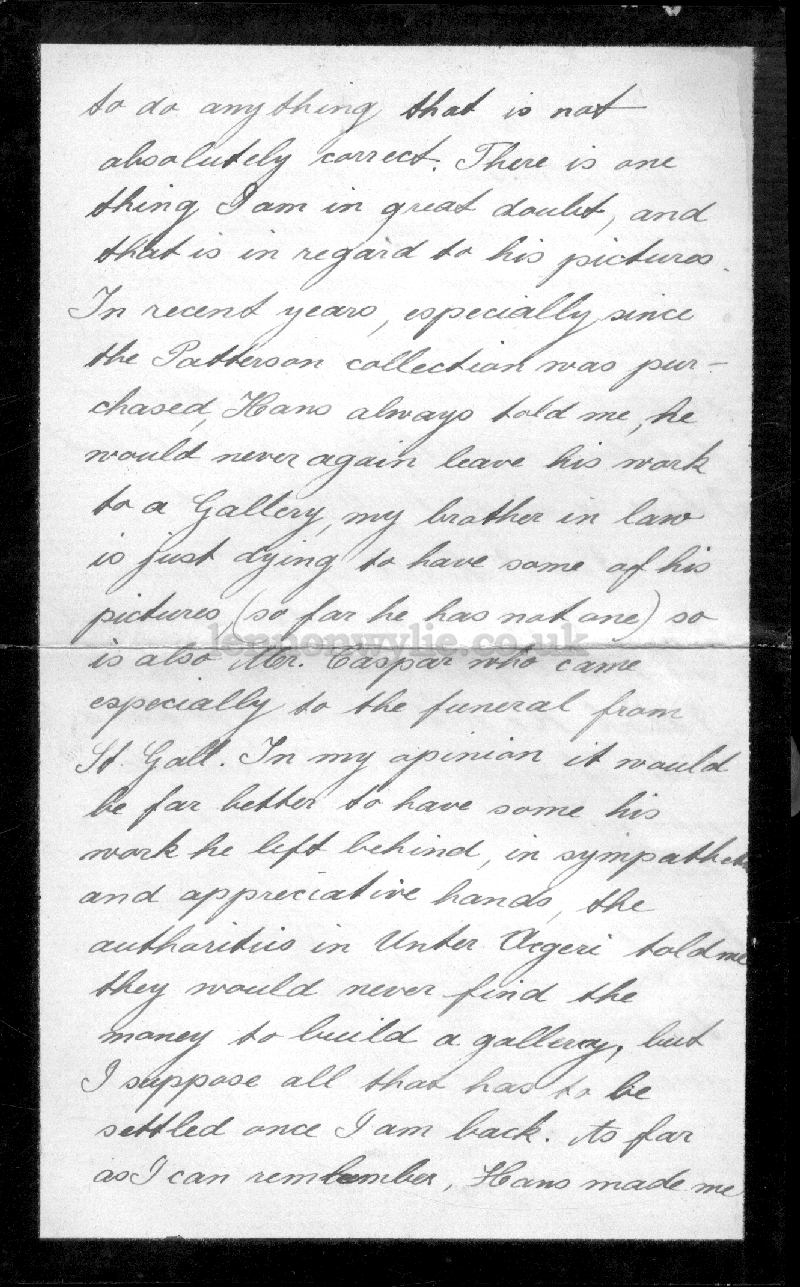 to do anything that is not
absolutely correct. There is one
thing I am in great doubt, and
that is in regard to his pictures.
In recent years, especially since
the Patterson collection was pur-
chased, Hans always told me, he
would never again leave his work
to a Gallery, my brother in law
is just dying to have some of his
pictures (so far he has not one) so
lennonwylie.co.uk
is also Mr. Caspar who came
especially to the funeral from
St. Gall. In my opinion it would
be far better to have some his
work he left behind, in sympathetic
and appreciative hands, the
authorities in Unter Aegeri told me
they would never find the
money to build a gallery, but
I suppose all that has to be
settled once I am back. As far
as I can remember, Hans made me